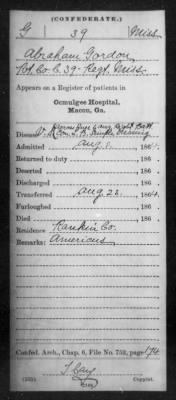 (CONFEDERATE.)
G 39 Miss.
Abraham Gordon
Pvt. Co. C. 39 Regt. Miss.
Appears on a Register of patients in
Ocmulgee Hospital,
Macon, Ga.
Disease
Admitted Aug. 186
Returned to duty 186
Deserted 186
Discharged 186
Transferred Aug 22 1864
Furloughed 186
Died 186
Residence Rankin Co.
Remarks: Americus
Confed. Arch., Chap. 6, File No. 753, page 174
Copyist.